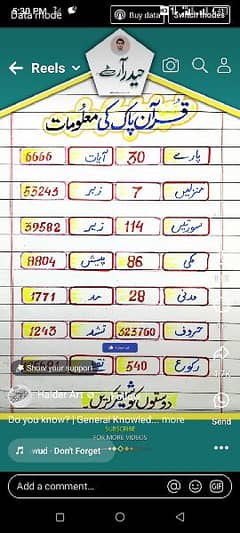 5:30 PM
Data mode
Buy data
Switch modes
Reels
حیدر آرٹ
قرآن پاک کی معلومات
پارے 30 آیات 6666
منزلیں 7 زبر 53243
سورتیں 114 زیر 39582
مکی 86 پیش 8804
مدنی 28 مد 1771
حروف 323760 تشد 1243
رکوع 540
Show your support
Haider Art
دوستوں کو شیئر کریں
Do you know? | General Knowled... more
SUBSCRIBE
FOR MORE VIDEOS
Send
wud · Don't Forget
Add a comment...
GIF